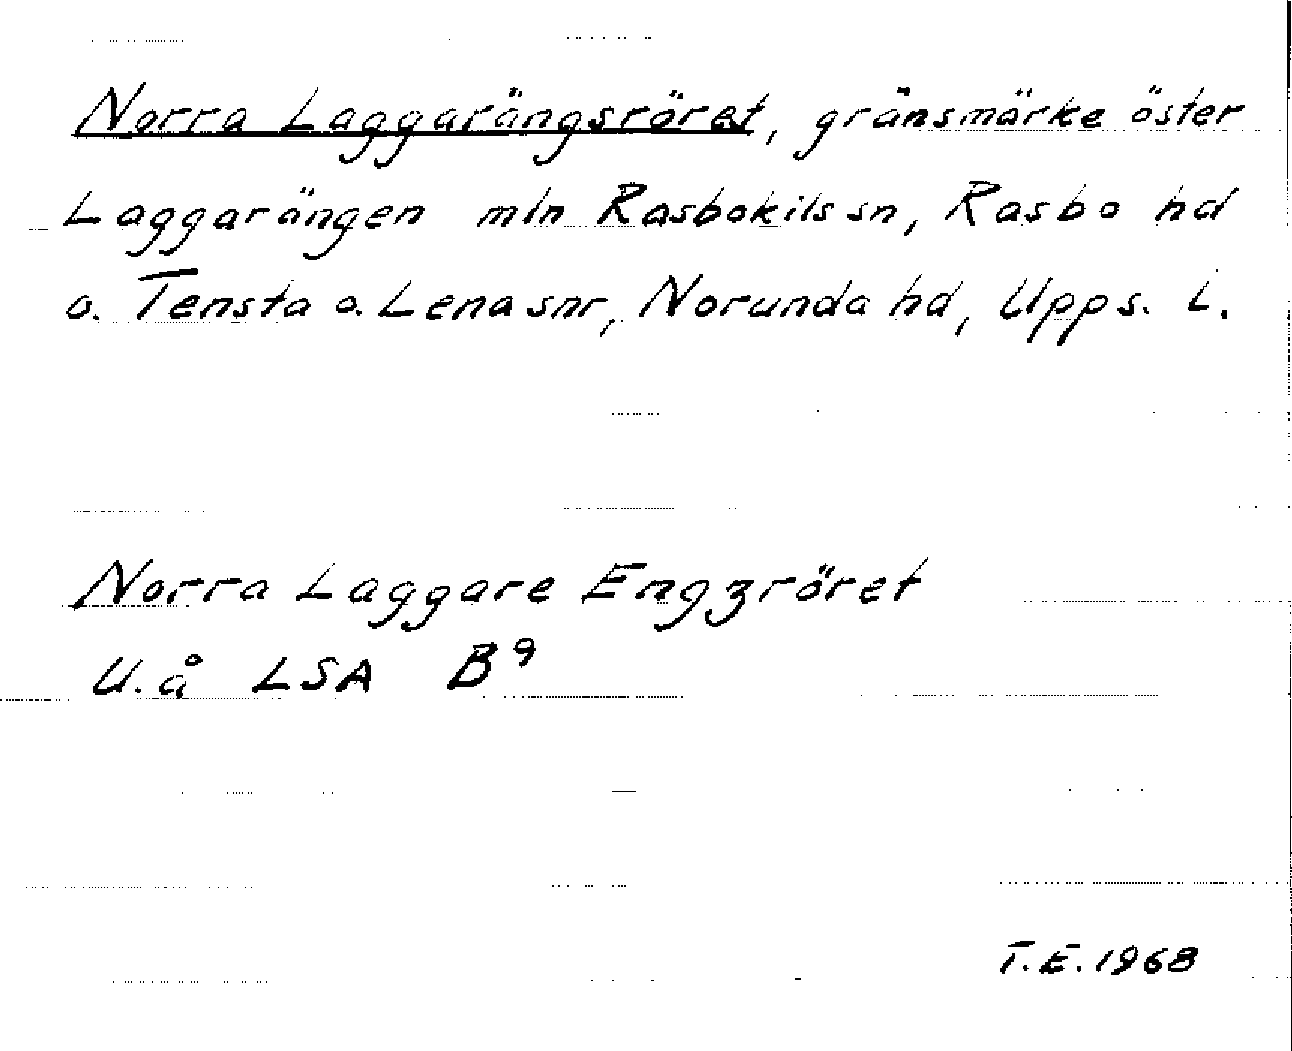 Norra Laggarängsröret, gränsmärke öster
Laggarängen mln Rasbokils sn, Rasbo hd
o. Tensta o. Lena snr, Norunda hd, Upps. l.
Norra Laggare Engzröret
U.å LSA B9
T.E. 1968